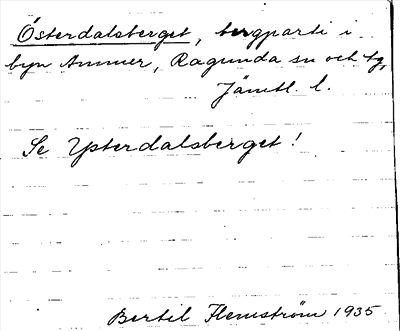 Österdalsberget, bergparti i
byn Ammer, Ragunda sn och tg,
Jämtl. l.
Se Ysterdalsberget!
Bertil Flemström 1935